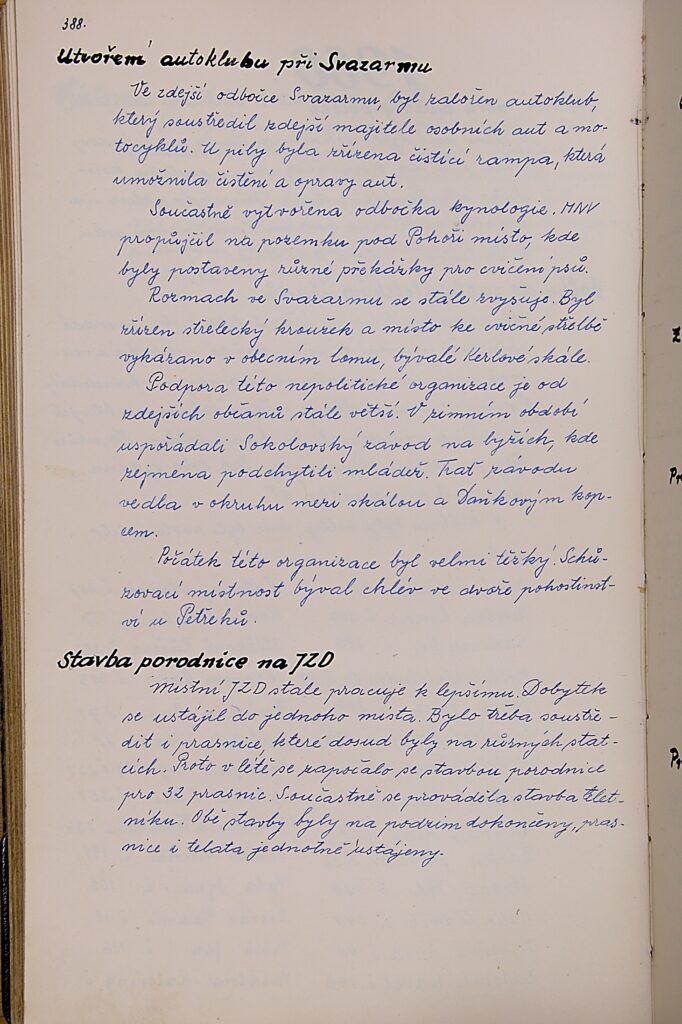 388.
Utvoření autoklubu při Svazarmu
Ve zdejší odbočce Svazarmu, byl založen autoklub,
který soustředil zdejší majitele osobních aut a mo-
tocyklů. U pily byla zřízena čistící rampa, která
umožnila čistění a opravy aut.
Součastně vytvořena odbočka kynologie. MNV
propůjčil na pozemku pod Pohoři místo, kde
byly postaveny různé překážky pro cvičení psů.
Rozmach ve Svazarmu se stále zvyšuje. Byl
zřízen střelecký kroužek a místo ke cvičné střelbě
vykázano v obecním lomu, bývalé Kerlové skále.
Podpora této nepolitické organizace je od
zdejších občanů stále větší. V zimním období
uspořádali Sokolovský závod na lyžích, kde
zejména podchytili mládež. Trať závodu
vedla v okruhu mezi skálou a Daňkovým kop-
cem.
Počátek této organizace byl velmi těžký. Schů-
zovací místnost býval chlév ve dvoře pohostinst-
ví u Petřeků.
Stavba porodnice na JZD
Místní JZD stále pracuje k lepšímu. Dobytek
se ustájil do jednoho místa. Bylo třeba soustře-
dit i prasnice, které dosud byly na různých stat-
cích. Proto v létě se započalo se stavbou porodnice
pro 32 prasnic. Součastně se prováděla stavba telet-
níku. Obě stavby byly na podzim dokončeny, pras-
nice i telata jednotně ustájeny.